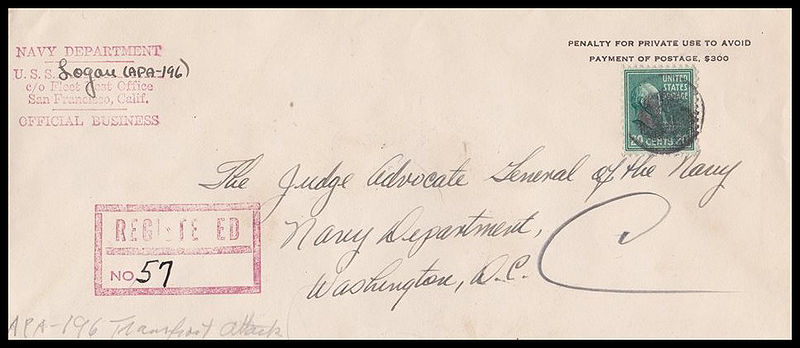 NAVY DEPARTMENT
U.S.S. Logan (APA-196)
c/o Fleet Post Office
San Francisco, Calif.
OFFICIAL BUSINESS
PENALTY FOR PRIVATE USE TO AVOID
PAYMENT OF POSTAGE, $300
UNITED
STATES
POSTAGE
20 CENTS 20
The Judge Advocate General of the Navy
Navy Department,
Washington, D.C.
REGISTERED
NO 57
APA-196 Transport attack